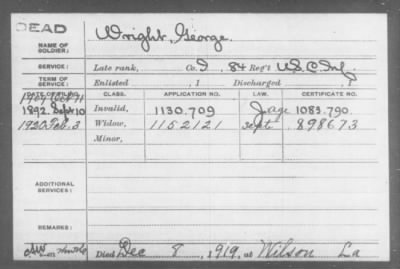 DEAD
Wright, George.
NAME OF SOLDIER:
SERVICE: Late rank, Co. I, 84 Reg't U.S.C. Inf.
TERM OF SERVICE: Enlisted , 1 Discharged , 1
DATE OF FILING. CLASS. APPLICATION NO. LAW. CERTIFICATE NO.
1907 Oct 11
1892. Sept 10 Invalid, 1130.709 age 1083.790.
1920 Feb. 3 Widow, 1152121 Sept. 898673
Minor,
ADDITIONAL SERVICES:
REMARKS:
Died Dec 8, 1919, at Wilson La